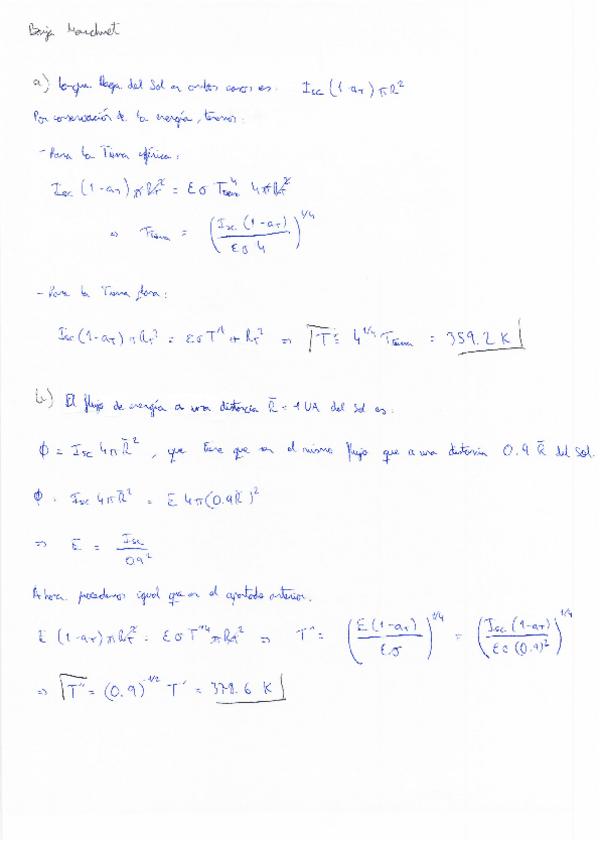 a) La que llega del Sol en ambos casos es: I_SC (1-a_T) π R²
Por conservación de la energía, tenemos:
- Para la Tierra esférica:
I_SC (1-a_T) π R_T² = ε σ T_Tierra⁴ 4π R_T²
⇒ T_Tierra = (I_SC (1-a_T) / εσ 4)^1/4
- Para la Tierra plana:
I_SC (1-a_T) π R_T² = εσ T'⁴ π R_T² ⇒ T' = 4^1/4 T_Tierra = 359.2 K
b) El flujo de energía a una distancia R̄ = 1 UA del Sol es:
ϕ = I_SC 4π R̄², que tiene que ser el mismo flujo que a una distancia 0.9 R̄ del Sol.
ϕ = I_SC 4π R̄² = E 4π (0.9 R̄)²
⇒ E = I_SC / 0.9²
Ahora procedemos igual que en el apartado anterior.
E (1-a_T) π R_T² = εσ T''⁴ π R_T² ⇒ T'' = (E (1-a_T) / εσ)^1/4 = (I_SC (1-a_T) / εσ (0.9)²)^1/4
⇒ T'' = (0.9)^-1/2 T' = 378.6 K